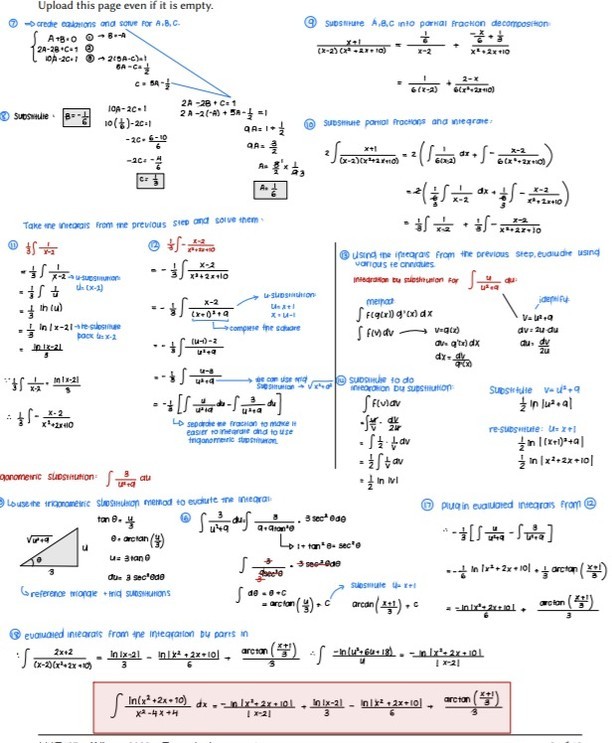 Upload this page even if it is empty.
⑦ → create equations and solve for A, B, C.
A+B=0 ① → B=-A
2A-2B+C=1 ②
10A-2C=1 ③ → 2(5A-C)=1
5A-C=1/2
C=5A-1/2
⑧ Substitute: B=-1/6
10A-2C=1
10(1/6)-2C=1
-2C=6-10/6
-2C=-4/6
C=1/3
2A-2B+C=1
2A-2(-A)+5A-1/2=1
9A=1+1/2
9A=3/2
A=3/2 × 1/9 3
A=1/6
⑨ Substitute A,B,C into partial fraction decomposition:
x+1/(x-2)(x²+2x+10) = 1/6/x-2 + -x/6+1/3/x²+2x+10
= 1/6(x-2) + 2-x/6(x²+2x+10)
⑩ Substitute partial fractions and integrate:
2∫ x+1/(x-2)(x²+2x+10) = 2(∫ 1/6(x-2) dx + ∫ - x-2/6(x²+2x+10))
= 2(1/6 ∫ 1/x-2 dx + 1/6 ∫ - x-2/x²+2x+10)
= 1/3 ∫ 1/x-2 + 1/3 ∫ - x-2/x²+2x+10
Take the integrals from the previous step and solve them:
⑪ 1/3 ∫ 1/x-2
= 1/3 ∫ 1/x-2 → u-substitution:
= 1/3 ∫ 1/u u=(x-2)
= 1/3 ln(u)
= 1/3 ln|x-2| → re-substitute back u=x-2
= ln|x-2|/3
∵ 1/3 ∫ 1/x-2 = ln|x-2|/3
∴ 1/3 ∫ - x-2/x²+2x+10
⑫ 1/3 ∫ - x-2/x²+2x+10
= - 1/3 ∫ x-2/x²+2x+10
= - 1/3 ∫ x-2/(x+1)²+9
u-substitution:
u=x+1
x=u-1
complete the square
= - 1/3 ∫ (u-1)-2/u²+9
= - 1/3 ∫ u-3/u²+9 → we can use trig substitution → √x²+a²
= - 1/3 [∫ u/u²+9 du - ∫ 3/u²+9 du]
separate the fraction to make it
easier to integrate and to use
trigonometric substitution.
⑬ Using the integrals from the previous step, evaluate using
various techniques.
Integration by substitution for ∫ u/u²+9 du:
method
∫ f(g(x)) g'(x) dx
∫ f(v) dv → v=g(x)
dv=g'(x) dx
dx=dv/g'(x)
identify:
v=u²+9
dv=2u du
du=dv/2u
⑭ Substitute to do
integration by substitution:
∫ f(v) dv
= ∫ u/v · dv/2u
= ∫ 1/2 · 1/v dv
= 1/2 ∫ 1/v dv
= 1/2 ln|v|
Substitute v=u²+9
1/2 ln|u²+9|
re-substitute: u=x+1
1/2 ln|(x+1)²+9|
1/2 ln|x²+2x+10|
substitution: ∫ 3/u²+9 du
use the trigonometric substitution method to evaluate the integral:
√u²+9
u
θ
3
reference triangle + trig substitutions
tan θ = u/3
θ = arctan(u/3)
u=3tanθ
du=3sec²θdθ
⑯ ∫ 3/u²+9 du = ∫ 3/9+9tan²θ · 3sec²θdθ
1+tan²θ=sec²θ
∫ 3/9sec²θ · 3sec²θdθ
∫ dθ = θ+C
= arctan(u/3)+C
substitute u=x+1
arctan(x+1/3)+C
⑰ plug in evaluated integrals from ⑫
∴ - 1/3 [∫ u/u²+9 - ∫ 3/u²+9]
= - 1/6 ln|x²+2x+10| + 1/3 arctan(x+1/3)
= -ln|x²+2x+10|/6 + arctan(x+1/3)/3
⑱ evaluated integrals from the integration by parts in
∵ ∫ 2x+2/(x-2)(x²+2x+10) = ln|x-2|/3 - ln|x²+2x+10|/6 + arctan(x+1/3)/3 ∴ ∫ -ln(u²+6u+18)/u = -ln|x²+2x+10|/|x-2|
∫ ln(x²+2x+10)/x²-4x+4 dx = -ln|x²+2x+10|/|x-2| + ln|x-2|/3 - ln|x²+2x+10|/6 + arctan(x+1/3)/3